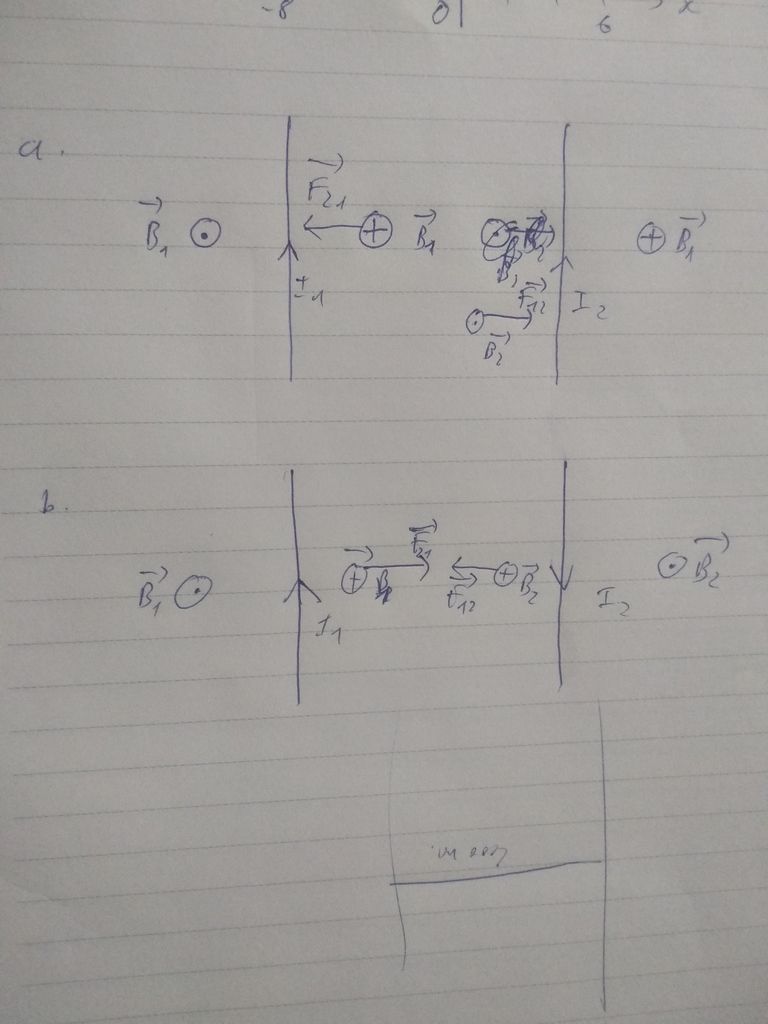 -8 0 6 x
a.
F₂₁
B₁ B₁ B₁
I₁ F₁₂ I₂
B₂
b.
F₂₁
B₁ B₁ F₁₂ B₂ B₂
I₁ I₂